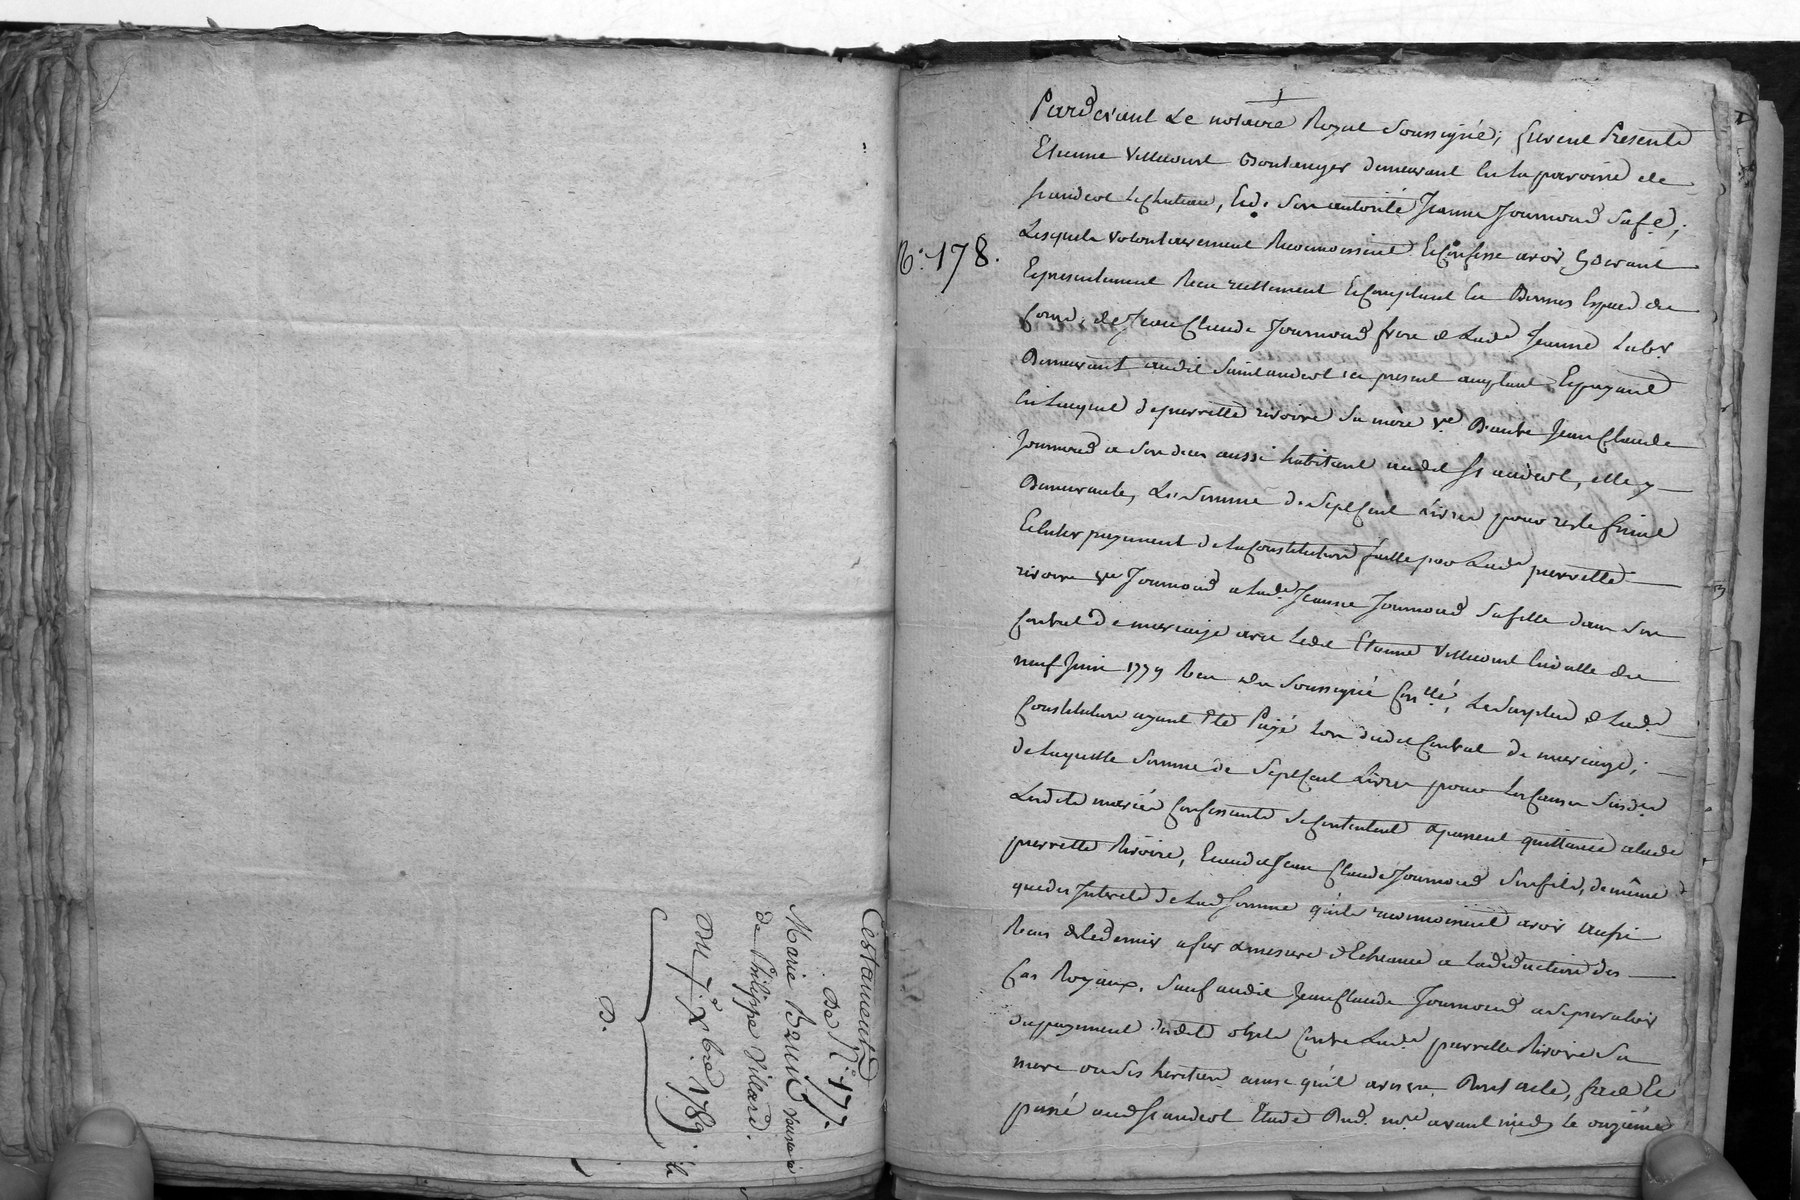 Testament
De N° 177.
Marie Brun
de Philippe Villard.
Du 7 Xbre 1789.
D.
N° 178.
Pardevant Le notaire Royal Soussigné; furent Presents
Etienne Villecourt Boulanger demeurant en la paroisse de
Sandeol le Chateau, & de Son autorité Jeanne Journoud Sa fe;
Lesquels volontairement Reconnoissent & Confesse avoir
& presentement Receu reellement & Comptant en Bonnes Especes du
Cours, de Jean Claude Journoud frere de Lade Jeanne Labr
Demeurant audit Saint andeol ici present acceptant & payant
en Lacquit de pierrette rivoire Sa mère ve D'autre Jean Claude
Journoud a Son deces aussi habitant audit St andeol, elle y
Demeurante, La Somme de Sept Cent livres pour reste finale
& Entier payement de la Constitution faitte par Lade pierrette
rivoire ve Journoud a lade Jeanne Journoud Sa fille dans Son
Contrat de mariage avec Ledit Etienne Villecourt en datte du
neuf Juin 1779 Receu du Soussigné Conllé, Le Surplus de Lade
Constitution ayant Eté Payé Lors dudit Contrat de mariage;
De Laquelle Somme de Sept Cent Livres pour Les Causes Susdes
Lesdits mariés Confessants Se Contentent & passent quittance a lade
pierrette Rivoire, & audit Jean Claude Journoud Son fils, de même
que des Interets de Lade Somme qu'ils reconnoissent avoir aussi
Receus de Led dernier a fur & mesure d'Echeance a La deduction des
Cas Royaux. Sauf audit Jean Claude Journoud a Se prevaloir
du payement dudit objet Contre Lade pierrette Rivoire Sa
mere ou Ses heritiers ainsi qu'il avisera Dont acte, fait &
passé aud St andeol Etude Dud. nore avant midy le onzième